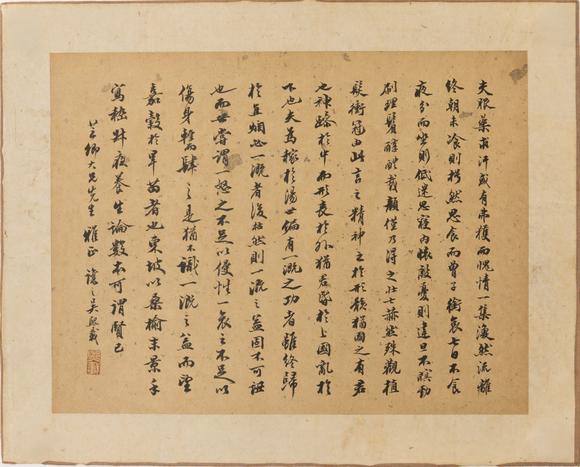 夫服藥求汗或有弗獲而愧情一集渙然流離
終朝未飡則枵然思食而曾子銜哀七日不食
夜分而坐則低迷思寢內懷殷憂則達旦不瞑勁
刷理鬢醇醴發顏僅乃得之壯士赫然殊觀植
髮衝冠由此言之精神之於形骸猶國之有君
也神躁於中而形喪於外猶君昏於上國亂於
下也夫為稼於湯世偏有一溉之功者雖終歸
於焦爛必一溉者後枯然則一溉之益固不可誣
也而世常謂一怒之不足以侵性一哀之不足以
傷身輕而肆之是猶不識一溉之益而望
嘉穀於旱苗者也東坡以桑榆末景手
寫嵇叔夜養生論數本可謂賢已
卿大兄先生雅正 讓之吳熙載